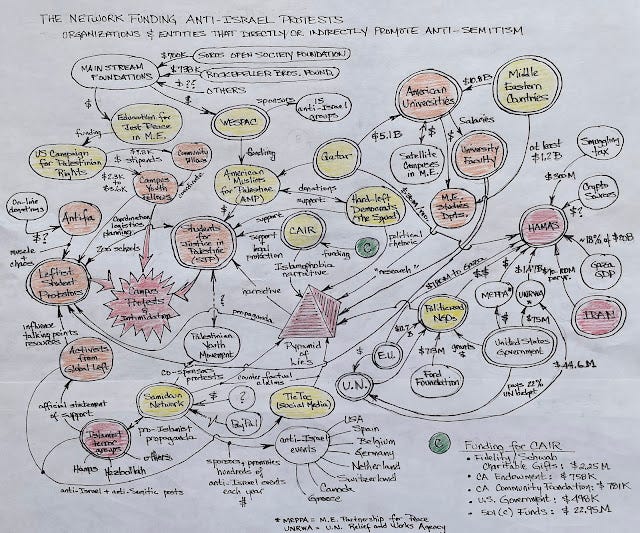 THE NETWORK FUNDING ANTI-ISRAEL PROTESTS
ORGANIZATIONS & ENTITIES THAT DIRECTLY OR INDIRECTLY PROMOTE ANTI-SEMITISM
MAINSTREAM
FOUNDATIONS
$700K
SOROS OPEN SOCIETY FOUNDATION
ROCKEFELLER BROS. FUND
$??
OTHERS
$
$
Education for
Just Peace
in M.E.
WESPAC
sponsors
15
anti-Israel
groups
American
Universities
$10.8B
Middle
Eastern
Countries
funding
US Campaign
for Palestinian
Rights
$
stipends
Community
Fellows
coordinate
Campus
Youth
Fellows
funding
American
Muslims
for Palestine
(AMP)
Qatar
$5.1B
$
$
Salaries
Satellite
Campuses
in M.E.
University
Faculty
M.E.
Studies
Depts.
at least
$1.2B
Smuggling
Tax
$300M
Crypto
Sources
$?
On-line
donations
$?
Antifa
muscle +
chaos
Coordination
logistics
planning
200 schools
donations
support
Hard-left
Democrats
(The Squad)
support
Students
for
Justice in
Palestine
(SJP)
support +
legal
protection
CAIR
funding
C
Political
rhetoric
HAMAS
Gaza
GDP
IRAN
Leftist
Student
Protestors
Campus
Protests
Intimidation
Islamophobia
narrative
"research"
narrative
propaganda
Pyramid
of
Lies
Politicized
NGOs
MEPPA*
UNRWA*
$75M
United States
Government
influence
talking points
resources
Palestinian
Youth
Movement
co-sponsors
protests
E.U.
$
U.N.
Ford
Foundation
grants
$
$44.6M
pays 22%
UN budget
Activists
from
Global Left
official statement
of support
Samidoun
Network
counter-factual
claims
?
PayPal
TicToc
(social Media)
Islamist
terror
groups
pro-Islamist
propaganda
others
Hamas
Hezbollah
anti-Israel + anti-Semitic posts
sponsors, promotes
hundreds of
anti-Israel events
each year
$
anti-Israel
events
USA
Spain
Belgium
Germany
Netherland
Switzerland
Canada
Greece
C
Funding for CAIR
• Fidelity/Schwab
Charitable Gifts: $2.25M
• CA Endowment: $758K
• CA Community Foundation: $781K
• U.S. Government: $496K
• 501(c) Funds: $22.95M
* MEPPA = M.E. Partnership for Peace
UNRWA = U.N. Relief and Works Agency